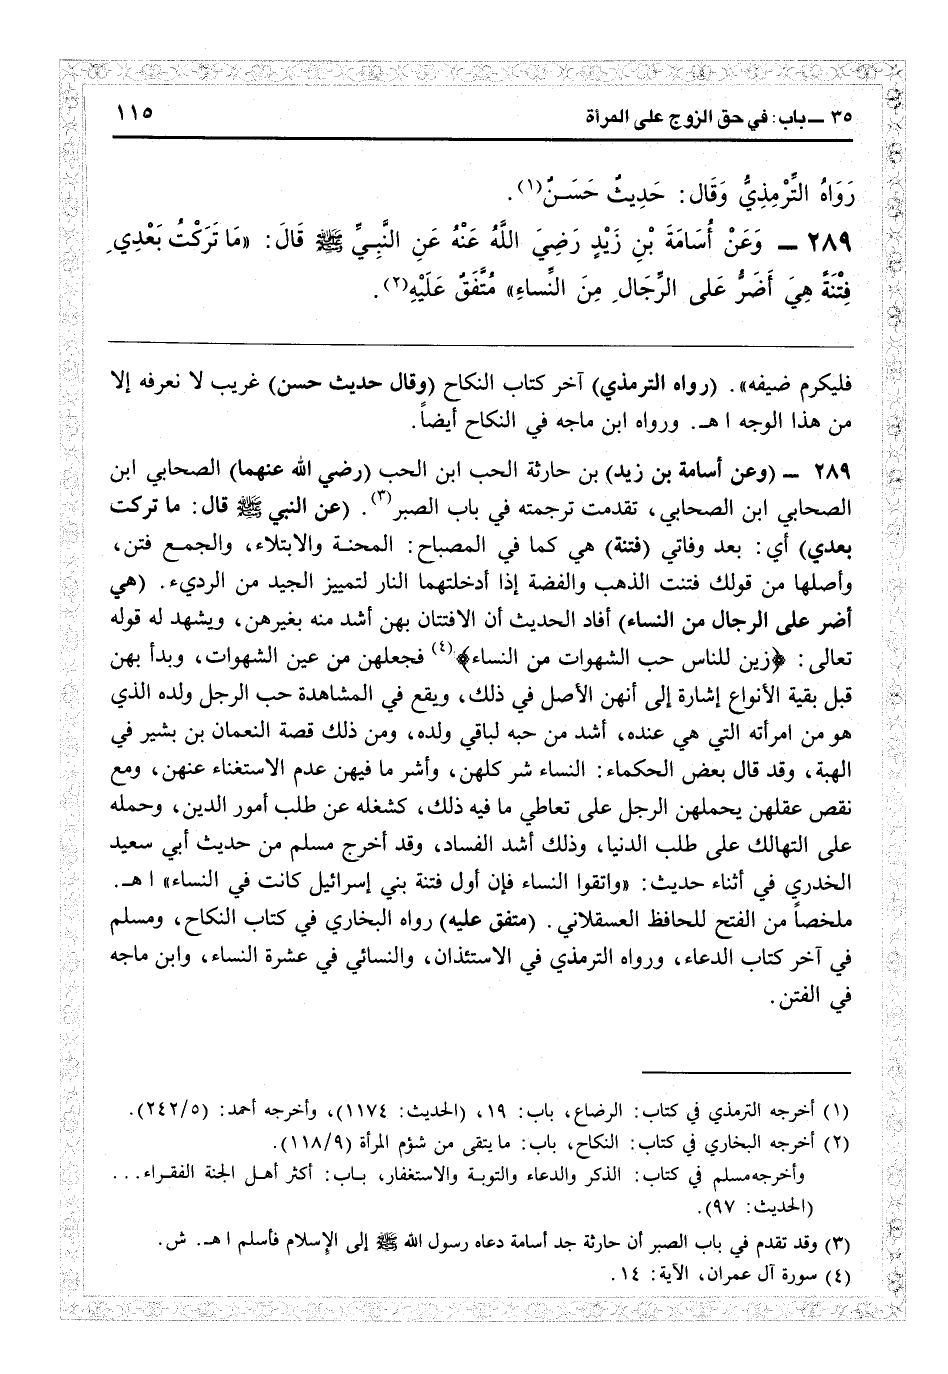 ٣٥ ـ باب: في حق الزوج على المرأة ١١٥
رَوَاهُ التِّرْمِذِيُّ وَقَال: حَدِيثٌ حَسَنٌ(١).
٢٨٩ ـ وَعَنْ أُسَامَةَ بْنِ زَيْدٍ رَضِيَ اللَّهُ عَنْهُ عَنِ النَّبِيِّ ﷺ قَالَ: «مَا تَرَكْتُ بَعْدِي
فِتْنَةً هِيَ أَضَرُّ عَلى الرِّجَالِ مِنَ النِّساءِ» مُتَّفَقٌ عَلَيْهِ(٢).
فليكرم ضيفه». (رواه الترمذي) آخر كتاب النكاح (وقال حديث حسن) غريب لا نعرفه إلا
من هذا الوجه ا هـ. ورواه ابن ماجه في النكاح أيضاً.
٢٨٩ ـ (وعن أسامة بن زيد) بن حارثة الحب ابن الحب (رضي الله عنهما) الصحابي ابن
الصحابي ابن الصحابي، تقدمت ترجمته في باب الصبر(٣). (عن النبي ﷺ قال: ما تركت
بعدي) أي: بعد وفاتي (فتنة) هي كما في المصباح: المحنة والابتلاء، والجمع فتن،
وأصلها من قولك فتنت الذهب والفضة إذا أدخلتهما النار لتمييز الجيد من الرديء. (هي
أضر على الرجال من النساء) أفاد الحديث أن الافتتان بهن أشد منه بغيرهن، ويشهد له قوله
تعالى: ﴿زين للناس حب الشهوات من النساء﴾(٤) فجعلهن من عين الشهوات، وبدأ بهن
قبل بقية الأنواع إشارة إلى أنهن الأصل في ذلك، ويقع في المشاهدة حب الرجل ولده الذي
هو من امرأته التي هي عنده، أشد من حبه لباقي ولده، ومن ذلك قصة النعمان بن بشير في
الهبة، وقد قال بعض الحكماء: النساء شر كلهن، وأشر ما فيهن عدم الاستغناء عنهن، ومع
نقص عقلهن يحملهن الرجل على تعاطي ما فيه ذلك، كشغله عن طلب أمور الدين، وحمله
على التهالك على طلب الدنيا، وذلك أشد الفساد، وقد أخرج مسلم من حديث أبي سعيد
الخدري في أثناء حديث: «واتقوا النساء فإن أول فتنة بني إسرائيل كانت في النساء» ا هـ.
ملخصاً من الفتح للحافظ العسقلاني. (متفق عليه) رواه البخاري في كتاب النكاح، ومسلم
في آخر كتاب الدعاء، ورواه الترمذي في الاستئذان، والنسائي في عشرة النساء، وابن ماجه
في الفتن.
(١) أخرجه الترمذي في كتاب: الرضاع، باب: ١٩، (الحديث: ١١٧٤)، وأخرجه أحمد: (٢٤٢/٥).
(٢) أخرجه البخاري في كتاب: النكاح، باب: ما يتقى من شؤم المرأة (١١٨/٩).
وأخرجه مسلم في كتاب: الذكر والدعاء والتوبة والاستغفار، باب: أكثر أهل الجنة الفقراء...
(الحديث: ٩٧).
(٣) وقد تقدم في باب الصبر أن حارثة جد أسامة دعاه رسول الله ﷺ إلى الإسلام فأسلم ا هـ. ش.
(٤) سورة آل عمران، الآية: ١٤.